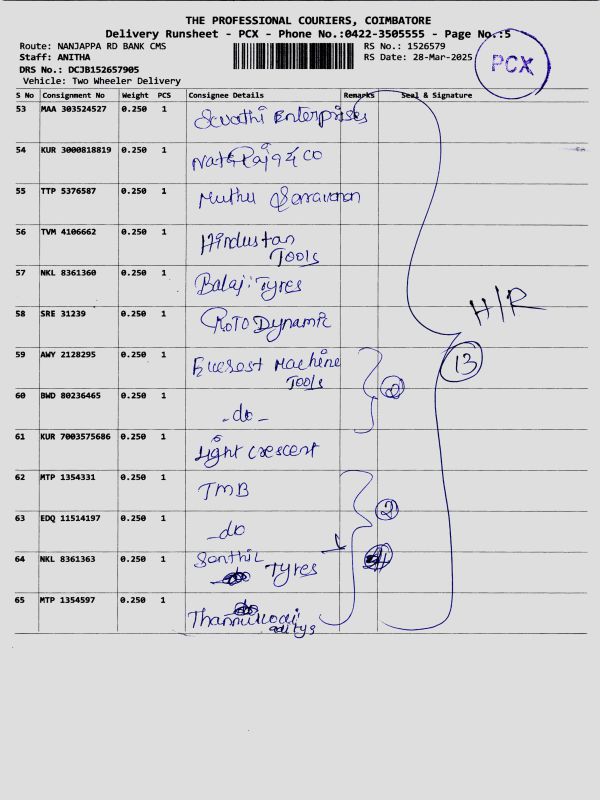 THE PROFESSIONAL COURIERS, COIMBATORE
Delivery Runsheet - PCX - Phone No.:0422-3505555 - Page No.:5
Route: NANJAPPA RD BANK CMS
RS No.: 1526579
Staff: ANITHA
RS Date: 28-Mar-2025
DRS No.: DCJB152657905
Vehicle: Two Wheeler Delivery
PCX
S No Consignment No Weight PCS Consignee Details Remarks Seal & Signature
53 MAA 303524527 0.250 1 Swathi Enterprises
54 KUR 3000818819 0.250 1 Nataraja & CO
55 TTP 5376587 0.250 1 Muthu Saravanan
56 TVM 4106662 0.250 1 Hindustan
Tools
57 NKL 8361360 0.250 1 Balaji Tyres
58 SRE 31239 0.250 1 ROTO Dynamic
H/R
13
59 AWY 2128295 0.250 1 Everest Machine
Tools
2
60 BWD 80236465 0.250 1 -do-
61 KUR 7003575686 0.250 1 Light Crescent
62 MTP 1354331 0.250 1 TMB
2
63 EDQ 11514197 0.250 1 -do
64 NKL 8361363 0.250 1 Senthil
Tyres
65 MTP 1354597 0.250 1